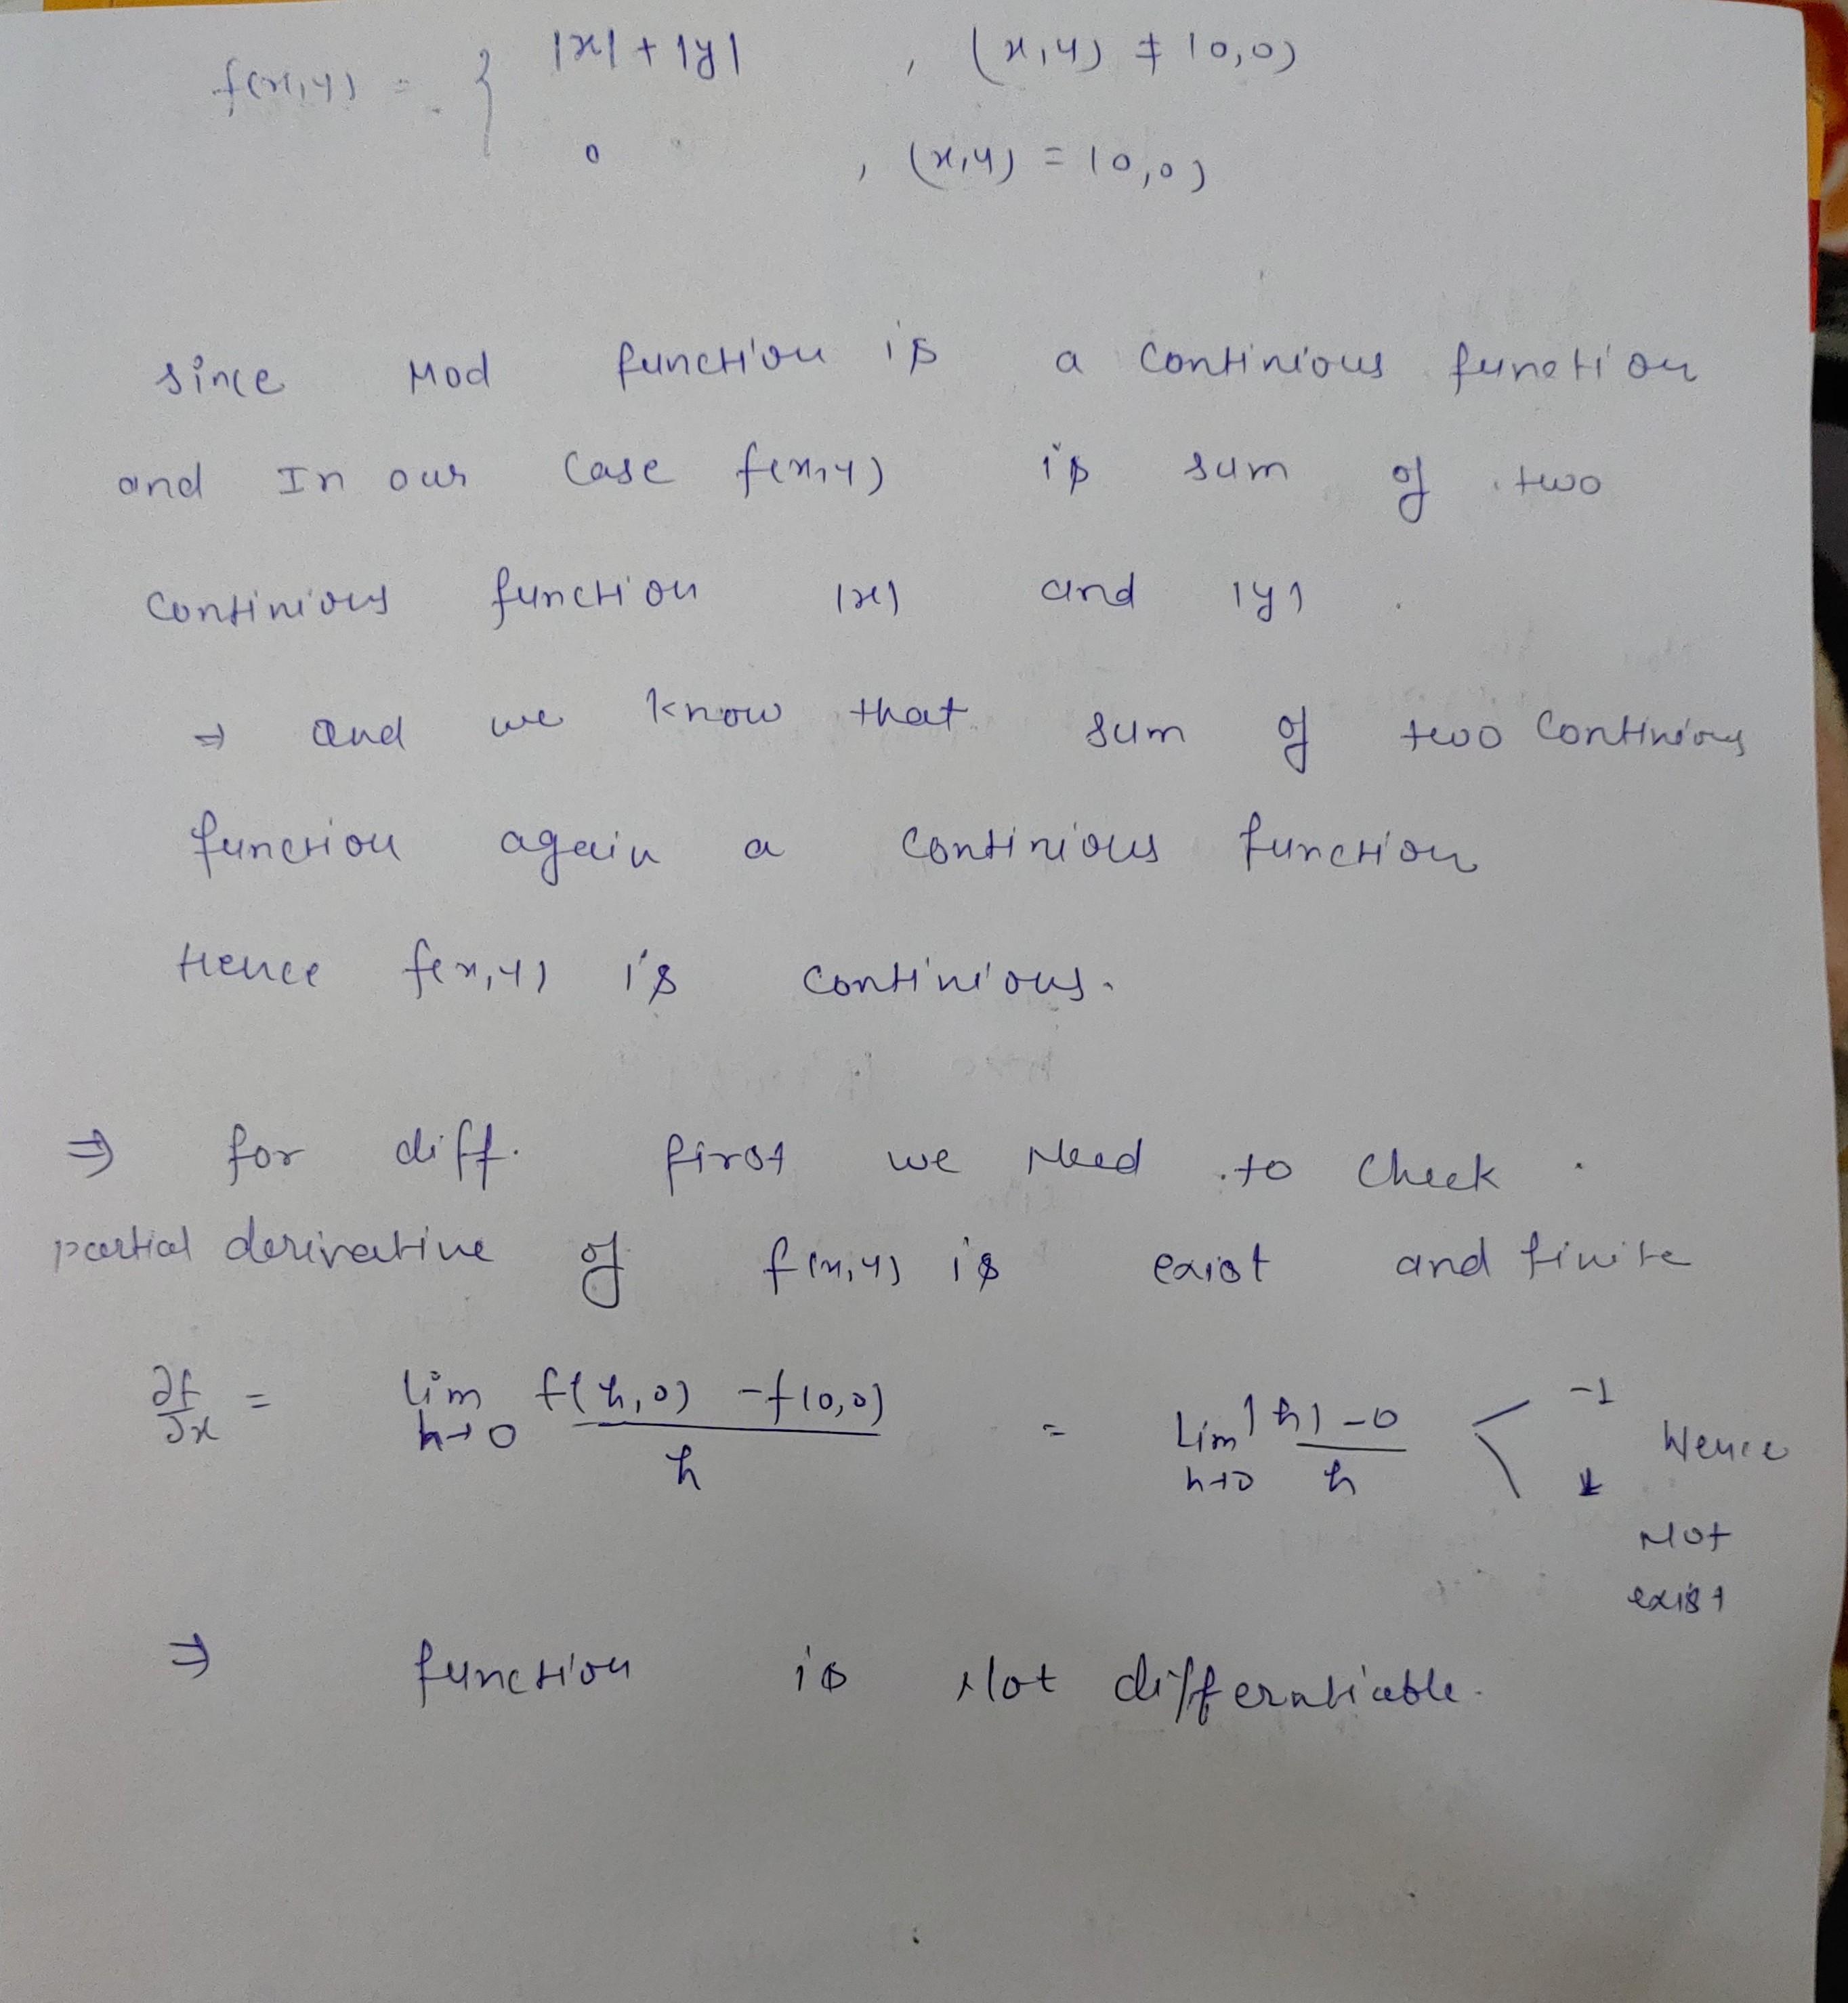 f(x,y) = { |x| + |y| , (x,y) ≠ (0,0)
0 , (x,y) = (0,0)
since Mod function is a continious function
and In our case f(x,y) is sum of two
continious function |x| and |y| .
⇒ and we know that sum of two continious
function again a continious function
Hence f(x,y) is continious.
⇒ for diff. first we Need to check
partial derivative of f(x,y) is exist and finite
∂f/∂x = lim h→0 f(h,0) - f(0,0) / h = Lim h→0 |h| - 0 / h < -1 1 Hence
Not
exist
⇒ function is Not differntiable.